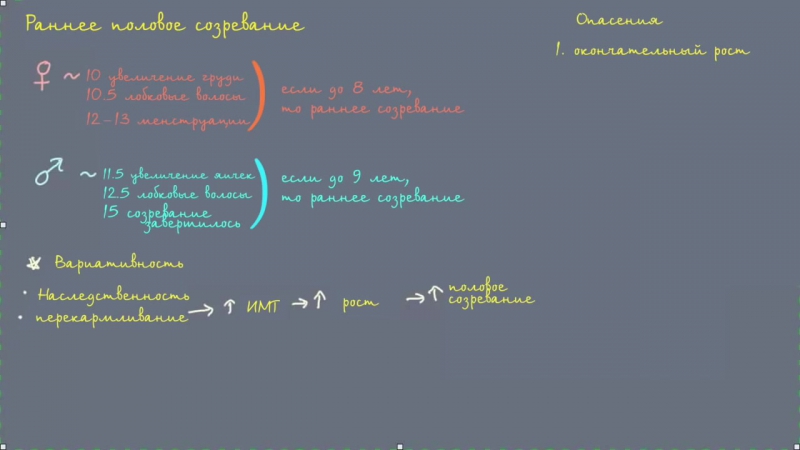 Раннее половое созревание
♀ ~ 10 увеличение груди
10.5 лобковые волосы
12-13 менструации
если до 8 лет,
то раннее созревание
♂ ~ 11.5 увеличение яичек
12.5 лобковые волосы
15 созревание
завершилось
если до 9 лет,
то раннее созревание
* Вариативность
• Наследственность
• перекармливание
→ ↑ ИМТ → ↑ рост → ↑ половое
созревание
Опасения
1. окончательный рост